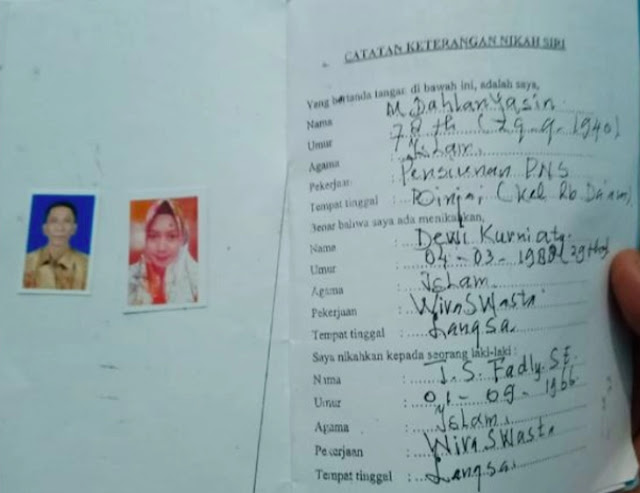 CATATAN KETERANGAN NIKAH SIRI
Yang bertanda tangan di bawah ini, adalah saya,
Nama : M. Dahlan Yasin.
Umur : 78 th (29-9-1940)
Agama : Islam.
Pekerjaan : Pensiunan PNS
Tempat tinggal : Binjai (Kel Rb Da'am)
Benar bahwa saya ada menikahkan,
Nama : Dewi Kurniati
Umur : 04-03-1980
Agama : Islam.
Pekerjaan : WiraSWasta
Tempat tinggal : Langsa.
Saya nikahkan kepada seorang laki-laki :
Nama : T. S. Fadly. SE.
Umur : 01-09-1966
Agama : Islam.
Pekerjaan : WiraSWasta
Tempat tinggal : Langsa.